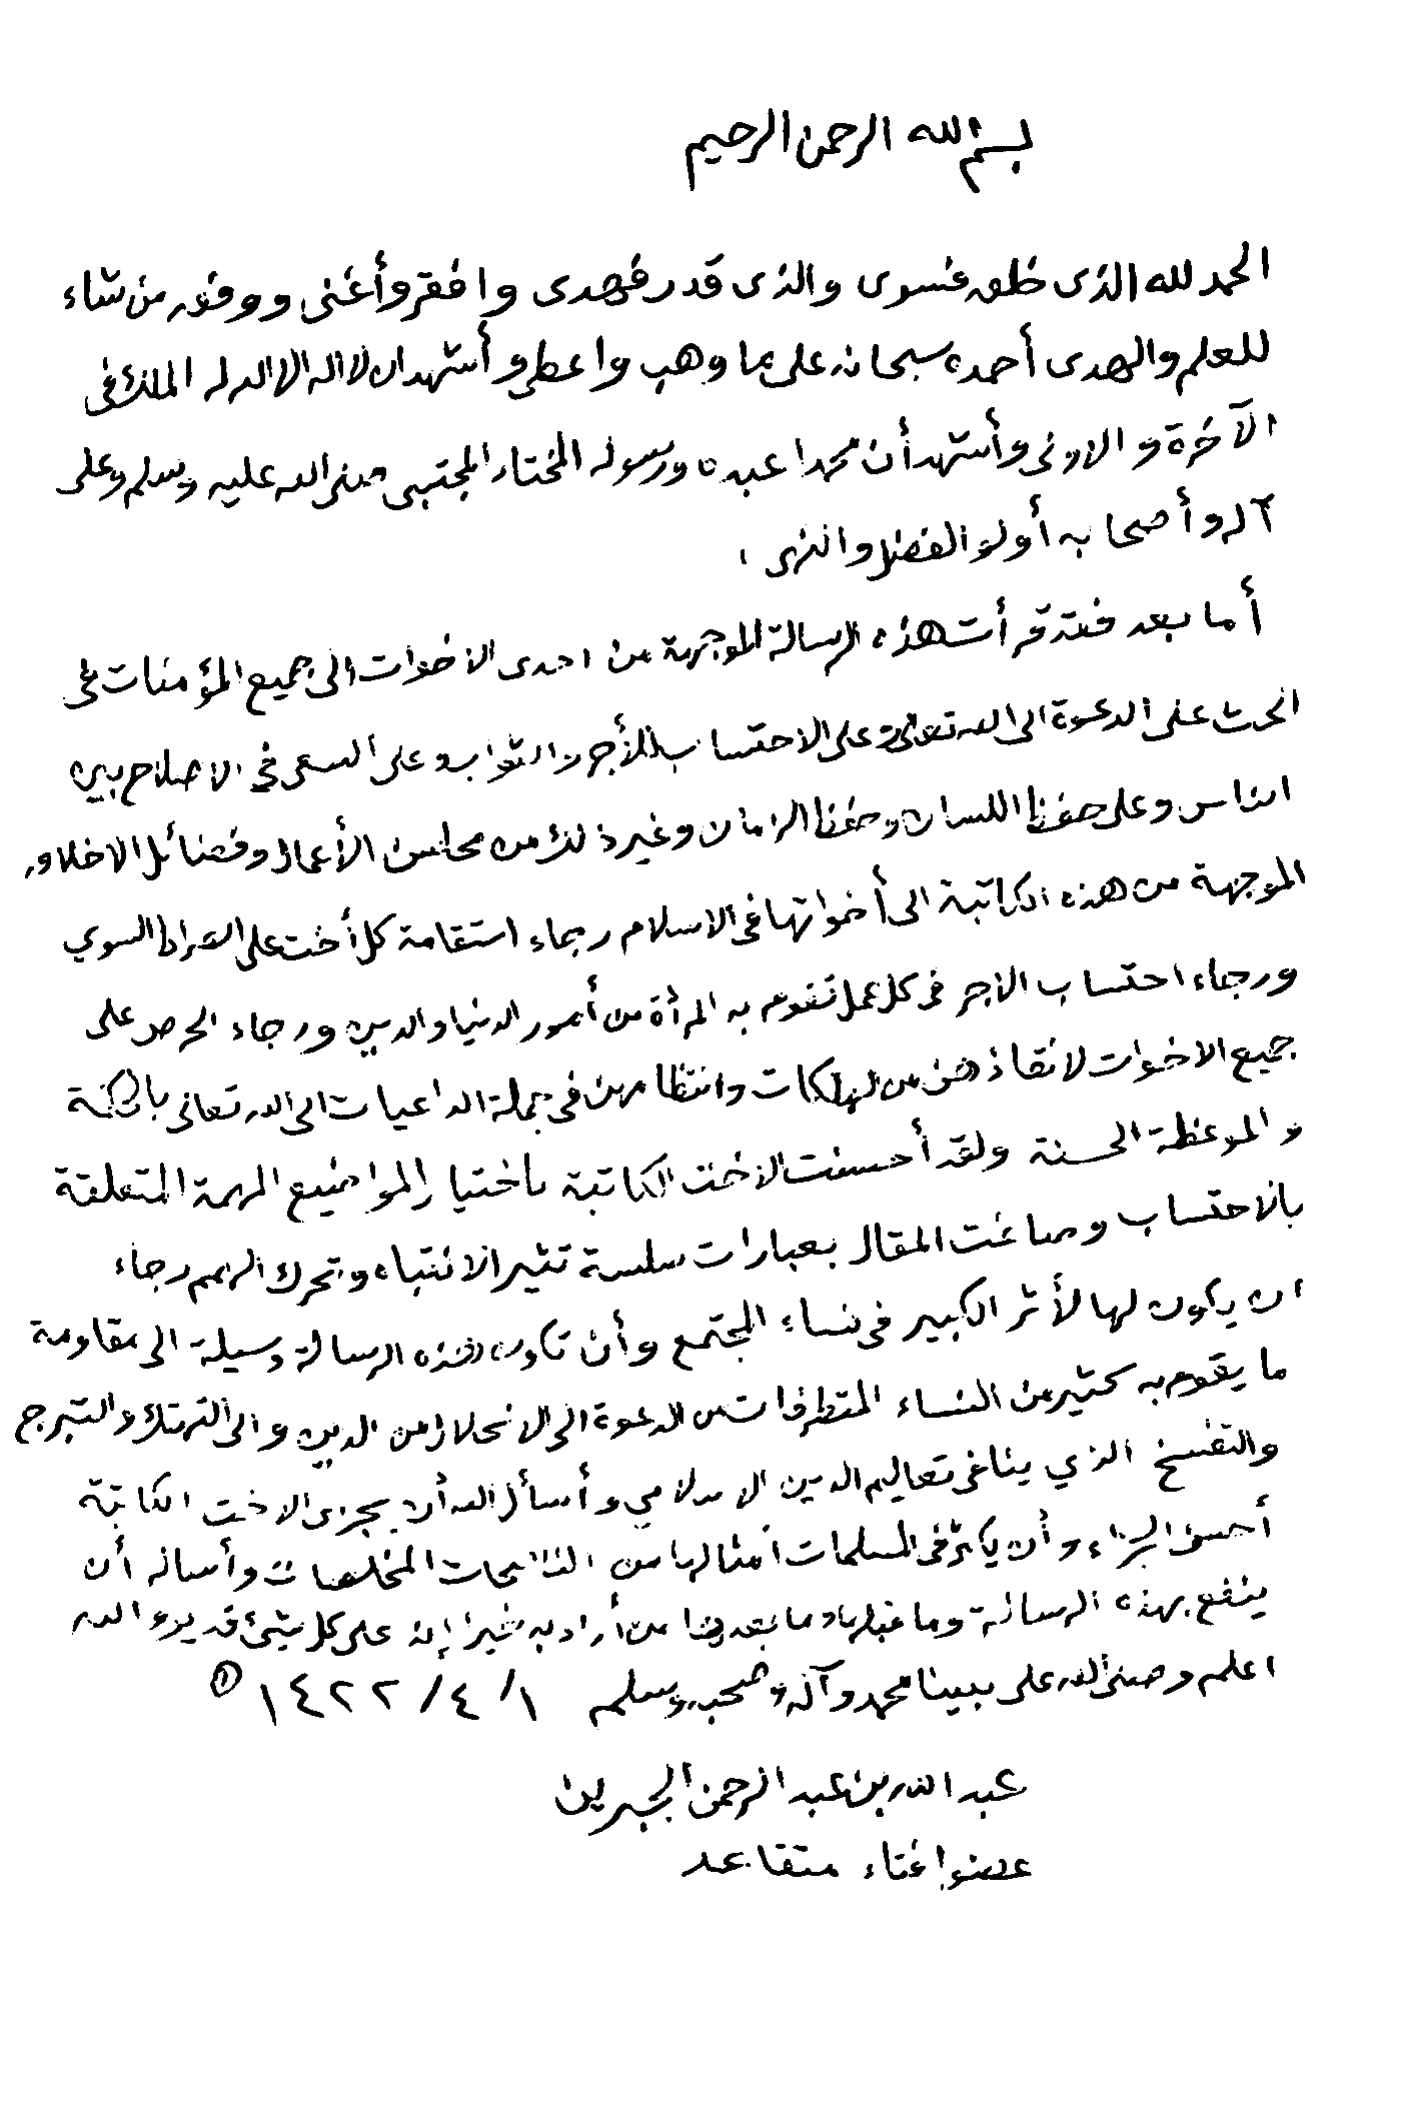 بسم الله الرحمن الرحيم
الحمد لله الذى خلق فسوى والذى قدر فهدى وافقر وأغنى ووفق من شاء
للعلم والهدى أحمده سبحانه على ما وهب واعطى وأشهد ان لا اله الا الله له الملك فى
الآخرة والاولى وأشهد أن محمدا عبده ورسوله المختار المجتبى صلى الله عليه وسلم وعلى
آله وأصحابه أولو الفضل والنهى ،
أما بعد فقد قرأت هذه الرسالة الموجهة من احدى الاخوات الى جميع المؤمنات فى
الحث على الدعوة الى الله تعالى وعلى الاحتساب للأجر والثواب وعلى السعى فى الاصلاح بين
الناس وعلى حفظ اللسان وحفظ الزمان وغير ذلك من محاسن الأعمال وفضائل الاخلاق
الموجهة من هذه الكاتبة الى أخواتها فى الاسلام رجاء استقامة كل أخت على الصراط السوي
ورجاء احتساب الاجر فى كل عمل تقوم به المرأة من أمور الدنيا والدين ورجاء الحرص على
جميع الاخوات لانقاذهن من الهلكات وانتظامهن فى جملة الداعيات الى الله تعالى بالحكمة
والموعظة الحسنة ولقد أحسنت الاخت الكاتبة باختيار المواضيع المهمة المتعلقة
بالاحتساب وصاغت المقال بعبارات سلسة تثير الانتباه وتحرك الهمم رجاء
ان يكون لها الأثر الكبير فى نساء المجتمع وأن تكون هذه الرسالة وسيلة الى مقاومة
ما يقوم به كثير من النساء المتطرفات من الدعوة الى الانحلال من الدين والى التهتك والتبرج
والتفسخ الذي ينافى تعاليم الدين الاسلامي وأسأل الله أن يجزى الاخت الكاتبة
أحسن الجزاء وأن يكثر فى المسلمات أمثالها من الناصحات المخلصات وأسأله أن
ينفع بهذه الرسالة وما قبلها وما بعدها من أراد به خيرا إنه على كل شئ قدير والله
اعلم وصلى الله على نبينا محمد وآله وصحبه وسلم ١/ ٤/ ١٤٢٢ (١)
عبد الله بن عبد الرحمن الجبرين
عضو افتاء متقاعد